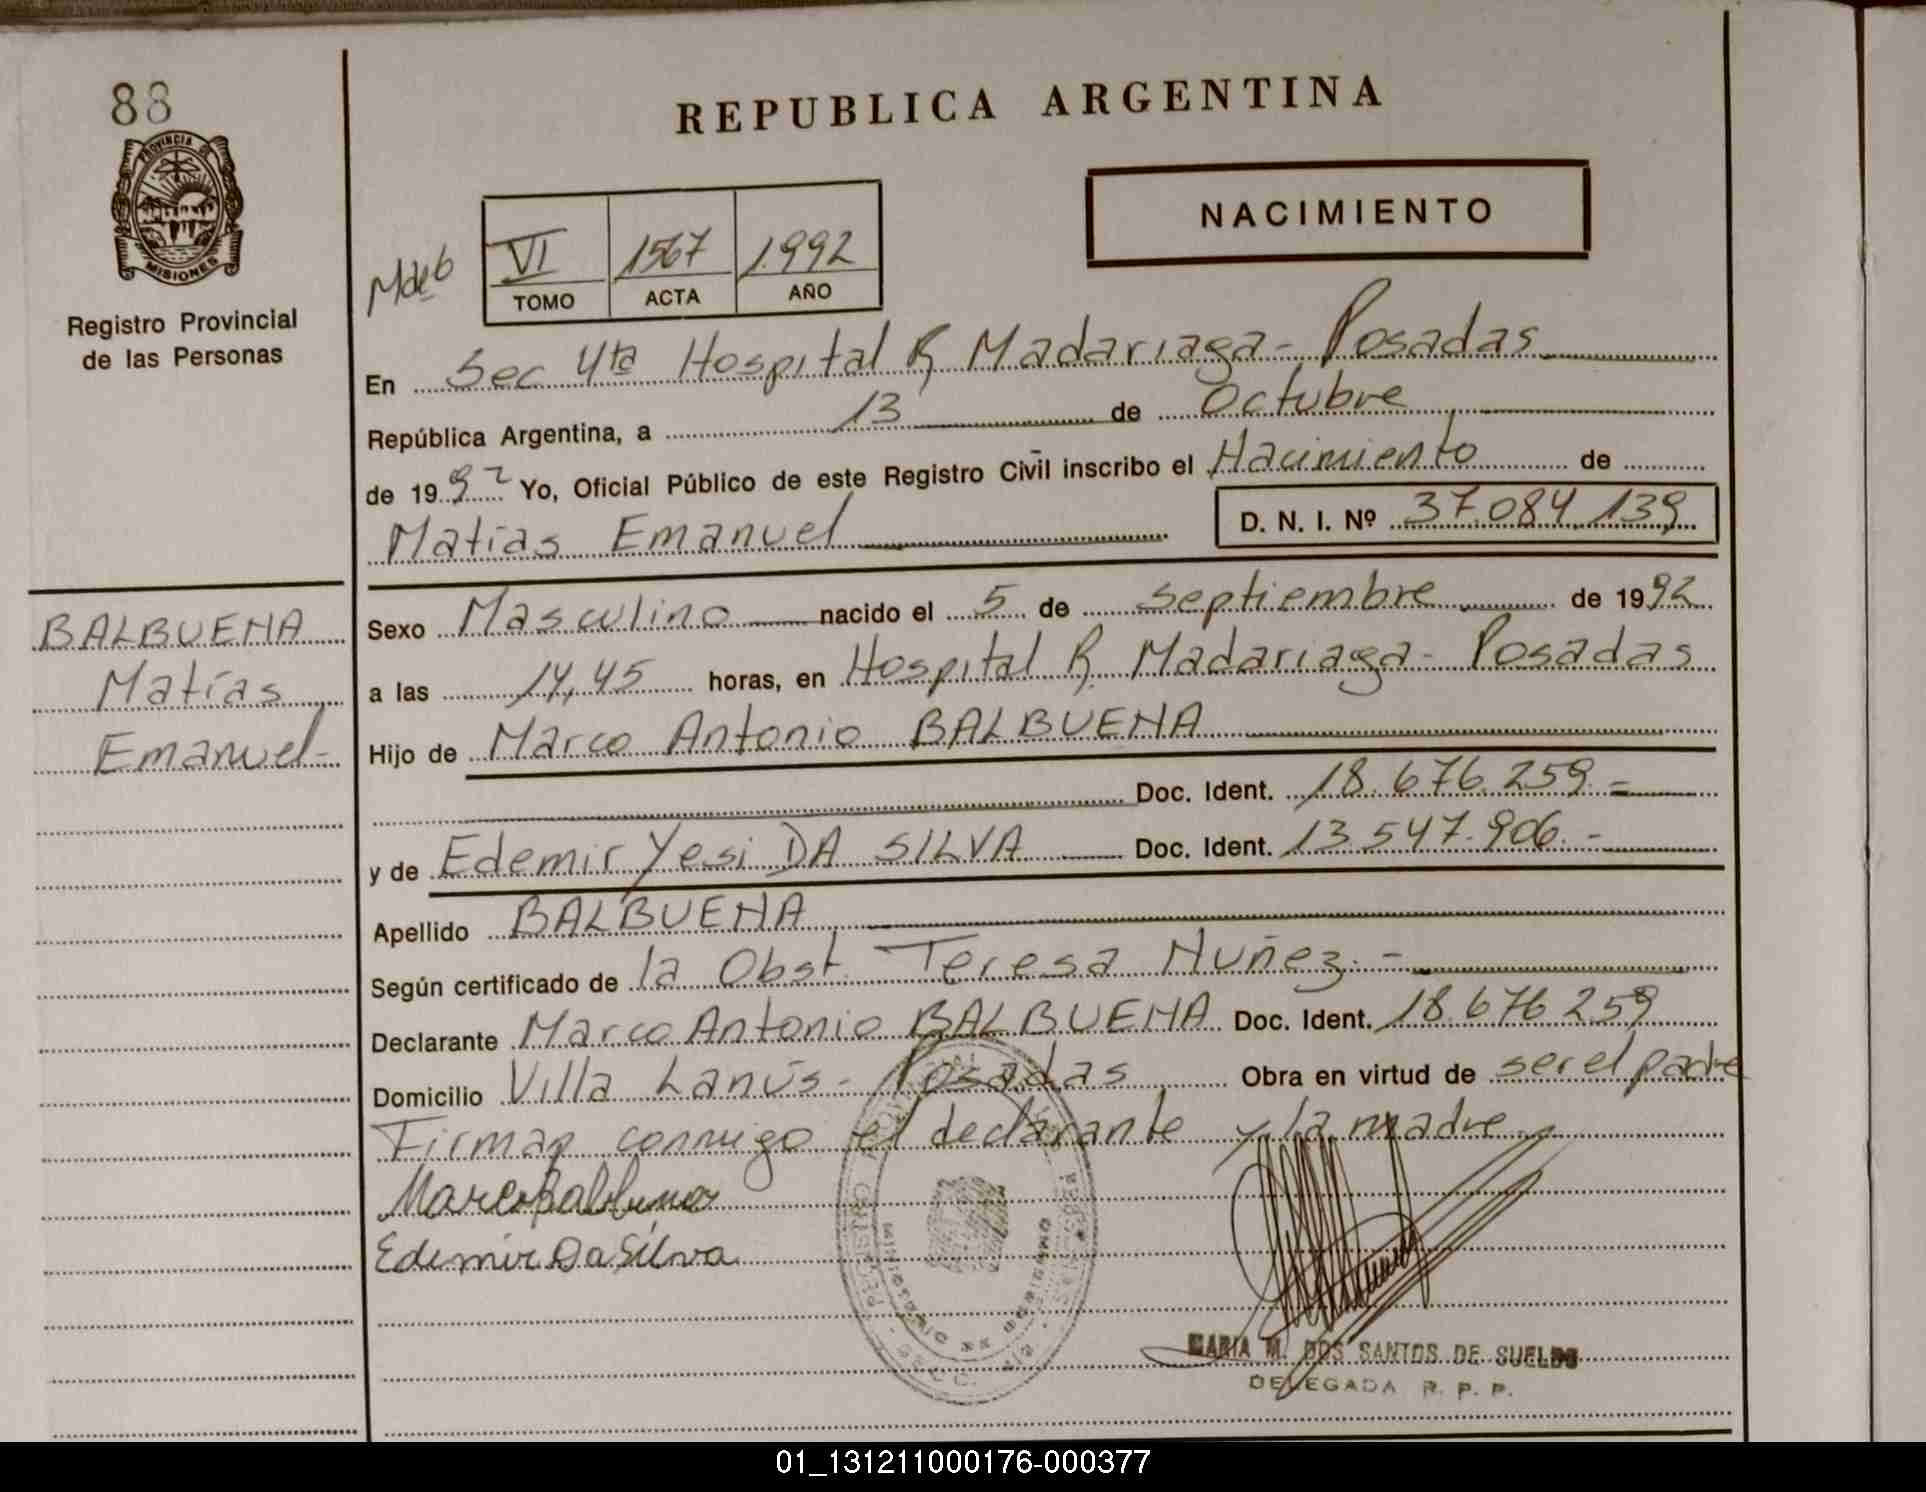 88
PROVINCIA DE
MISIONES
Registro Provincial
de las Personas
REPUBLICA ARGENTINA
NACIMIENTO
VI 1567 1992
TOMO ACTA AÑO
En Sec 4ta Hospital R Madariaga - Posadas
República Argentina, a 13 de Octubre
de 1992 Yo, Oficial Público de este Registro Civil inscribo el Nacimiento de
Matias Emanuel D. N. I. Nº 37.084.139
BALBUENA
Matías
Emanuel-
Sexo Masculino nacido el 5 de Septiembre de 1992
a las 14,45 horas, en Hospital R. Madariaga - Posadas
Hijo de Marco Antonio BALBUENA
Doc. Ident. 18.676.259.=
y de Edemir Yesi DA SILVA Doc. Ident. 13.547.906.-
Apellido BALBUENA
Según certificado de la Obst. Teresa Nuñez.-
Declarante Marco Antonio BALBUENA Doc. Ident. 18.676.259
Domicilio Villa Lanús - Posadas Obra en virtud de ser el padre
Firman conmigo el declarante y la madre
Marco Balbuena
Edemir Da Silva
MARIA M. DOS SANTOS DE SUELDO
DELEGADA R. P. P.
01_131211000176-000377